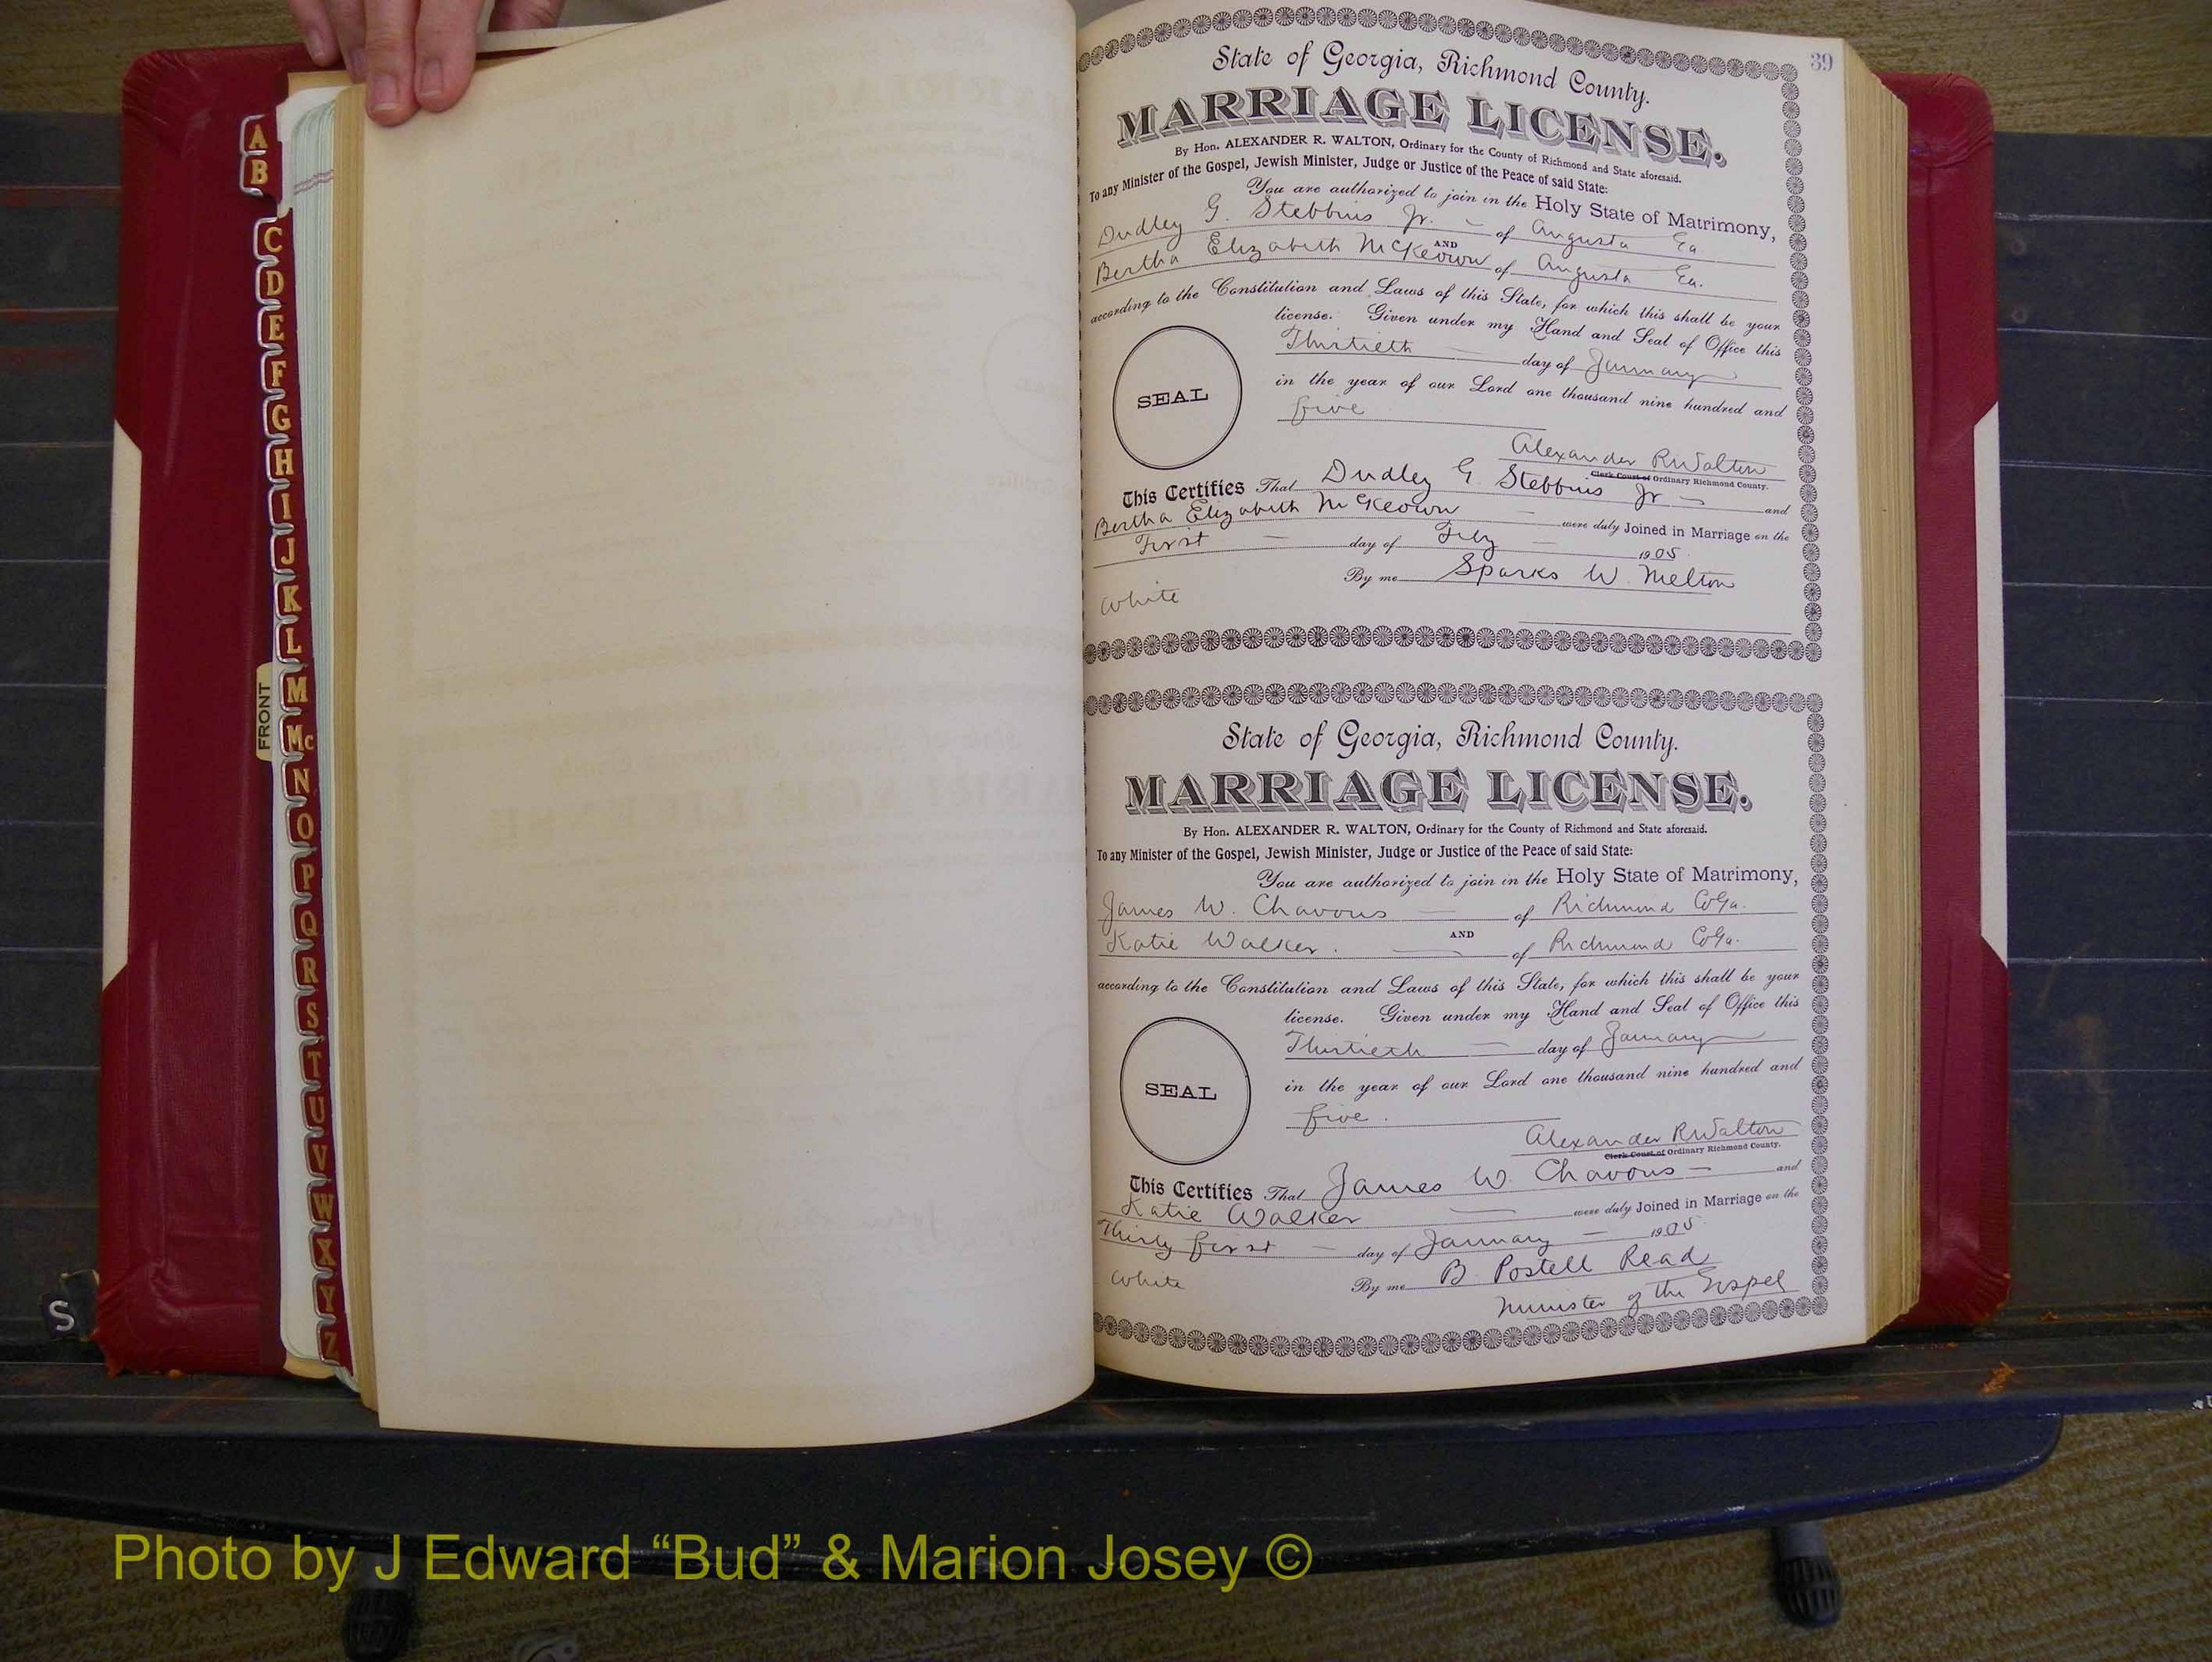 A
B
C
D
E
F
G
H
I
J
K
L
M
Mc
N
O
P
Q
R
S
T
U
V
W
X
Y
Z
FRONT
S
39
State of Georgia, Richmond County.
MARRIAGE LICENSE.
By Hon. ALEXANDER R. WALTON, Ordinary for the County of Richmond and State aforesaid.
To any Minister of the Gospel, Jewish Minister, Judge or Justice of the Peace of said State:
You are authorized to join in the Holy State of Matrimony,
Dudley G. Stebbins Jr. of Augusta Ga.
AND
Bertha Elizabeth McKeown of Augusta Ga.
according to the Constitution and Laws of this State, for which this shall be your
license. Given under my Hand and Seal of Office this
Thirtieth day of January
in the year of our Lord one thousand nine hundred and
five
SEAL
Alexander R Walton
Clerk Court of Ordinary Richmond County.
This Certifies That Dudley G Stebbins Jr and
Bertha Elizabeth McKeown were duly Joined in Marriage on the
First day of Feby 1905.
By me Sparks W. Melton
White
State of Georgia, Richmond County.
MARRIAGE LICENSE.
By Hon. ALEXANDER R. WALTON, Ordinary for the County of Richmond and State aforesaid.
To any Minister of the Gospel, Jewish Minister, Judge or Justice of the Peace of said State:
You are authorized to join in the Holy State of Matrimony,
James W. Chavous of Richmond Co Ga.
AND
Katie Walker. of Richmond Co Ga.
according to the Constitution and Laws of this State, for which this shall be your
license. Given under my Hand and Seal of Office this
Thirtieth day of January
in the year of our Lord one thousand nine hundred and
five.
SEAL
Alexander R Walton
Clerk Court of Ordinary Richmond County.
This Certifies That James W. Chavous and
Katie Walker were duly Joined in Marriage on the
Thirty first day of January 1905
By me B. Postell Read
White
Minister of the Gospel
Photo by J Edward “Bud” & Marion Josey ©